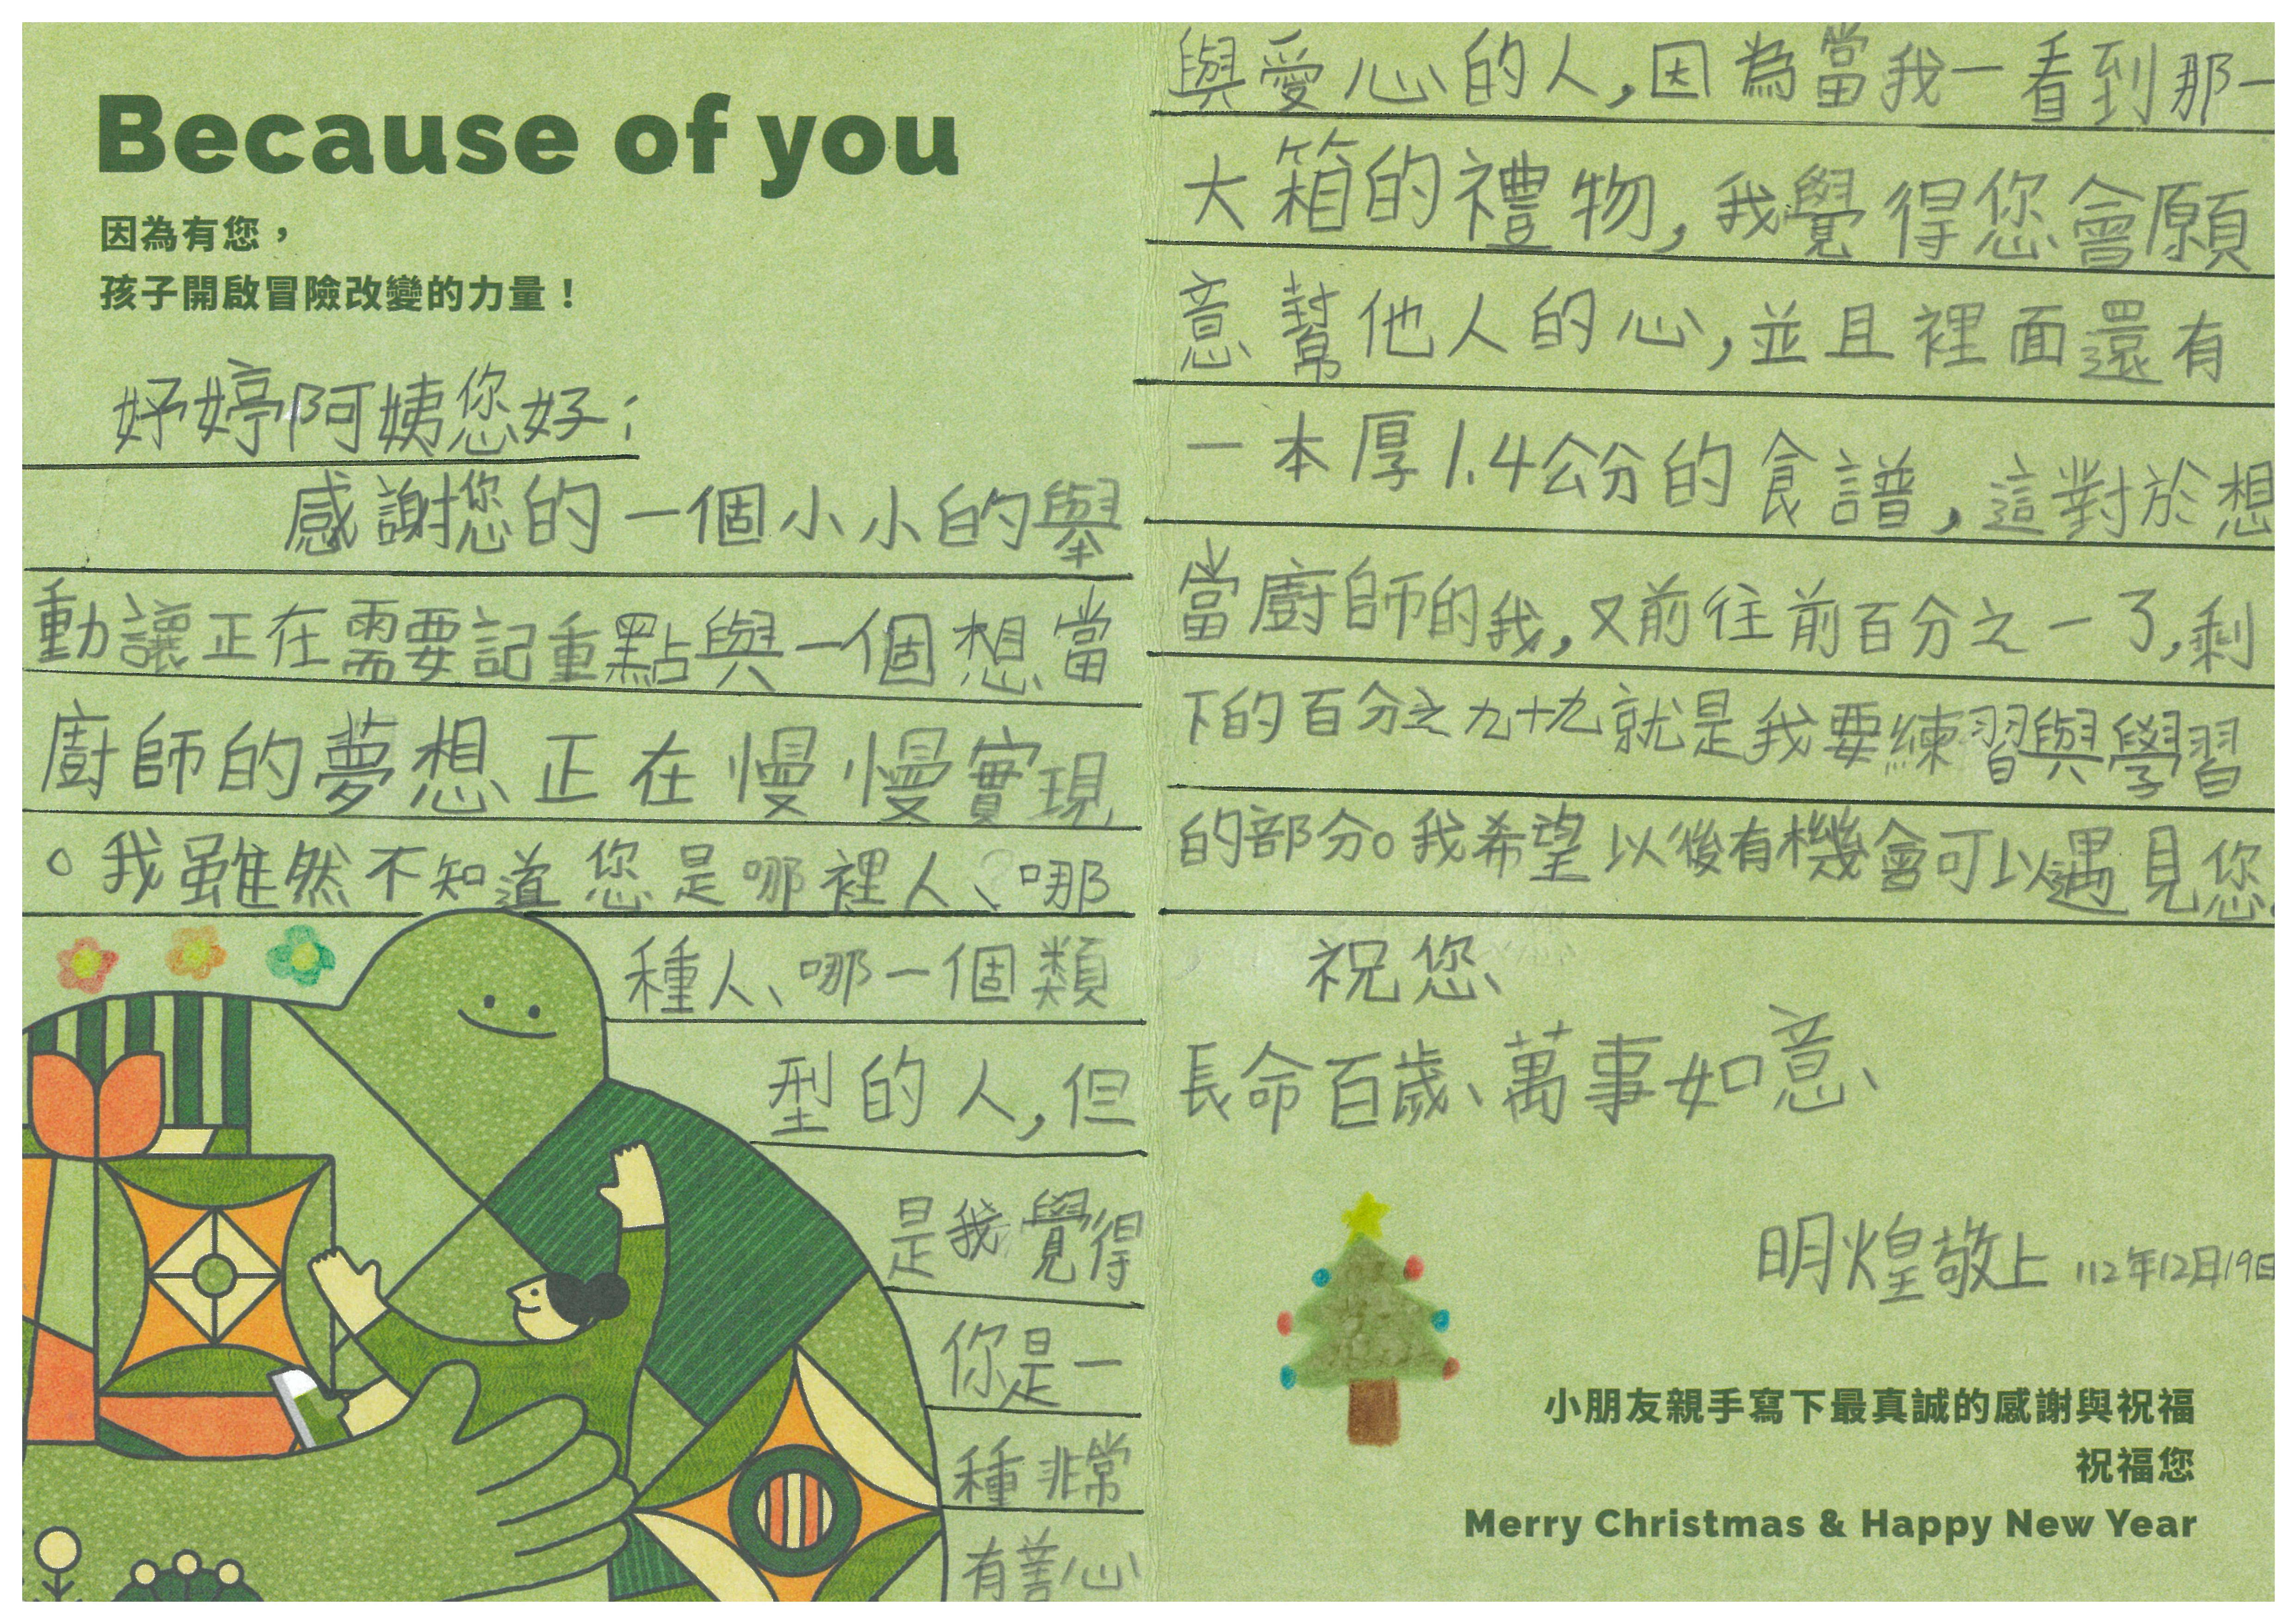 Because of you
因為有您，
孩子開啟冒險改變的力量！
妤婷阿姨您好：
感謝您的一個小小的舉
動讓正在需要記重點與一個想當
廚師的夢想正在慢慢實現
。我雖然不知道您是哪裡人、哪
種人、哪一個類
型的人，但
是我覺得
你是一
種非常
有善心
與愛心的人，因為當我一看到那一
大箱的禮物，我覺得您會願
意幫他人的心，並且裡面還有
一本厚1.4公分的食譜，這對於想
當廚師的我，又前往前百分之一了，剩
下的百分之九十九就是我要練習與學習
的部分。我希望以後有機會可以遇見您。
祝您
長命百歲、萬事如意
明煌敬上 112年12月19日
小朋友親手寫下最真誠的感謝與祝福
祝福您
Merry Christmas & Happy New Year